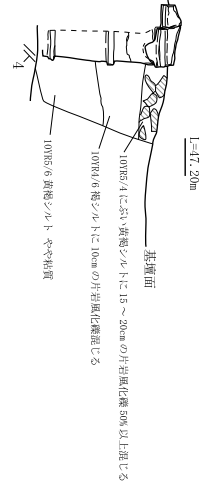 L=47.20m
基壇面
10YR5/4 にぶい黄褐シルトに 15 ～ 20cm の片岩風化礫 50% 以上混じる
10YR4/6 褐シルトに 10cm の片岩風化礫混じる
10YR5/6 黄褐シルト やや粘質
4